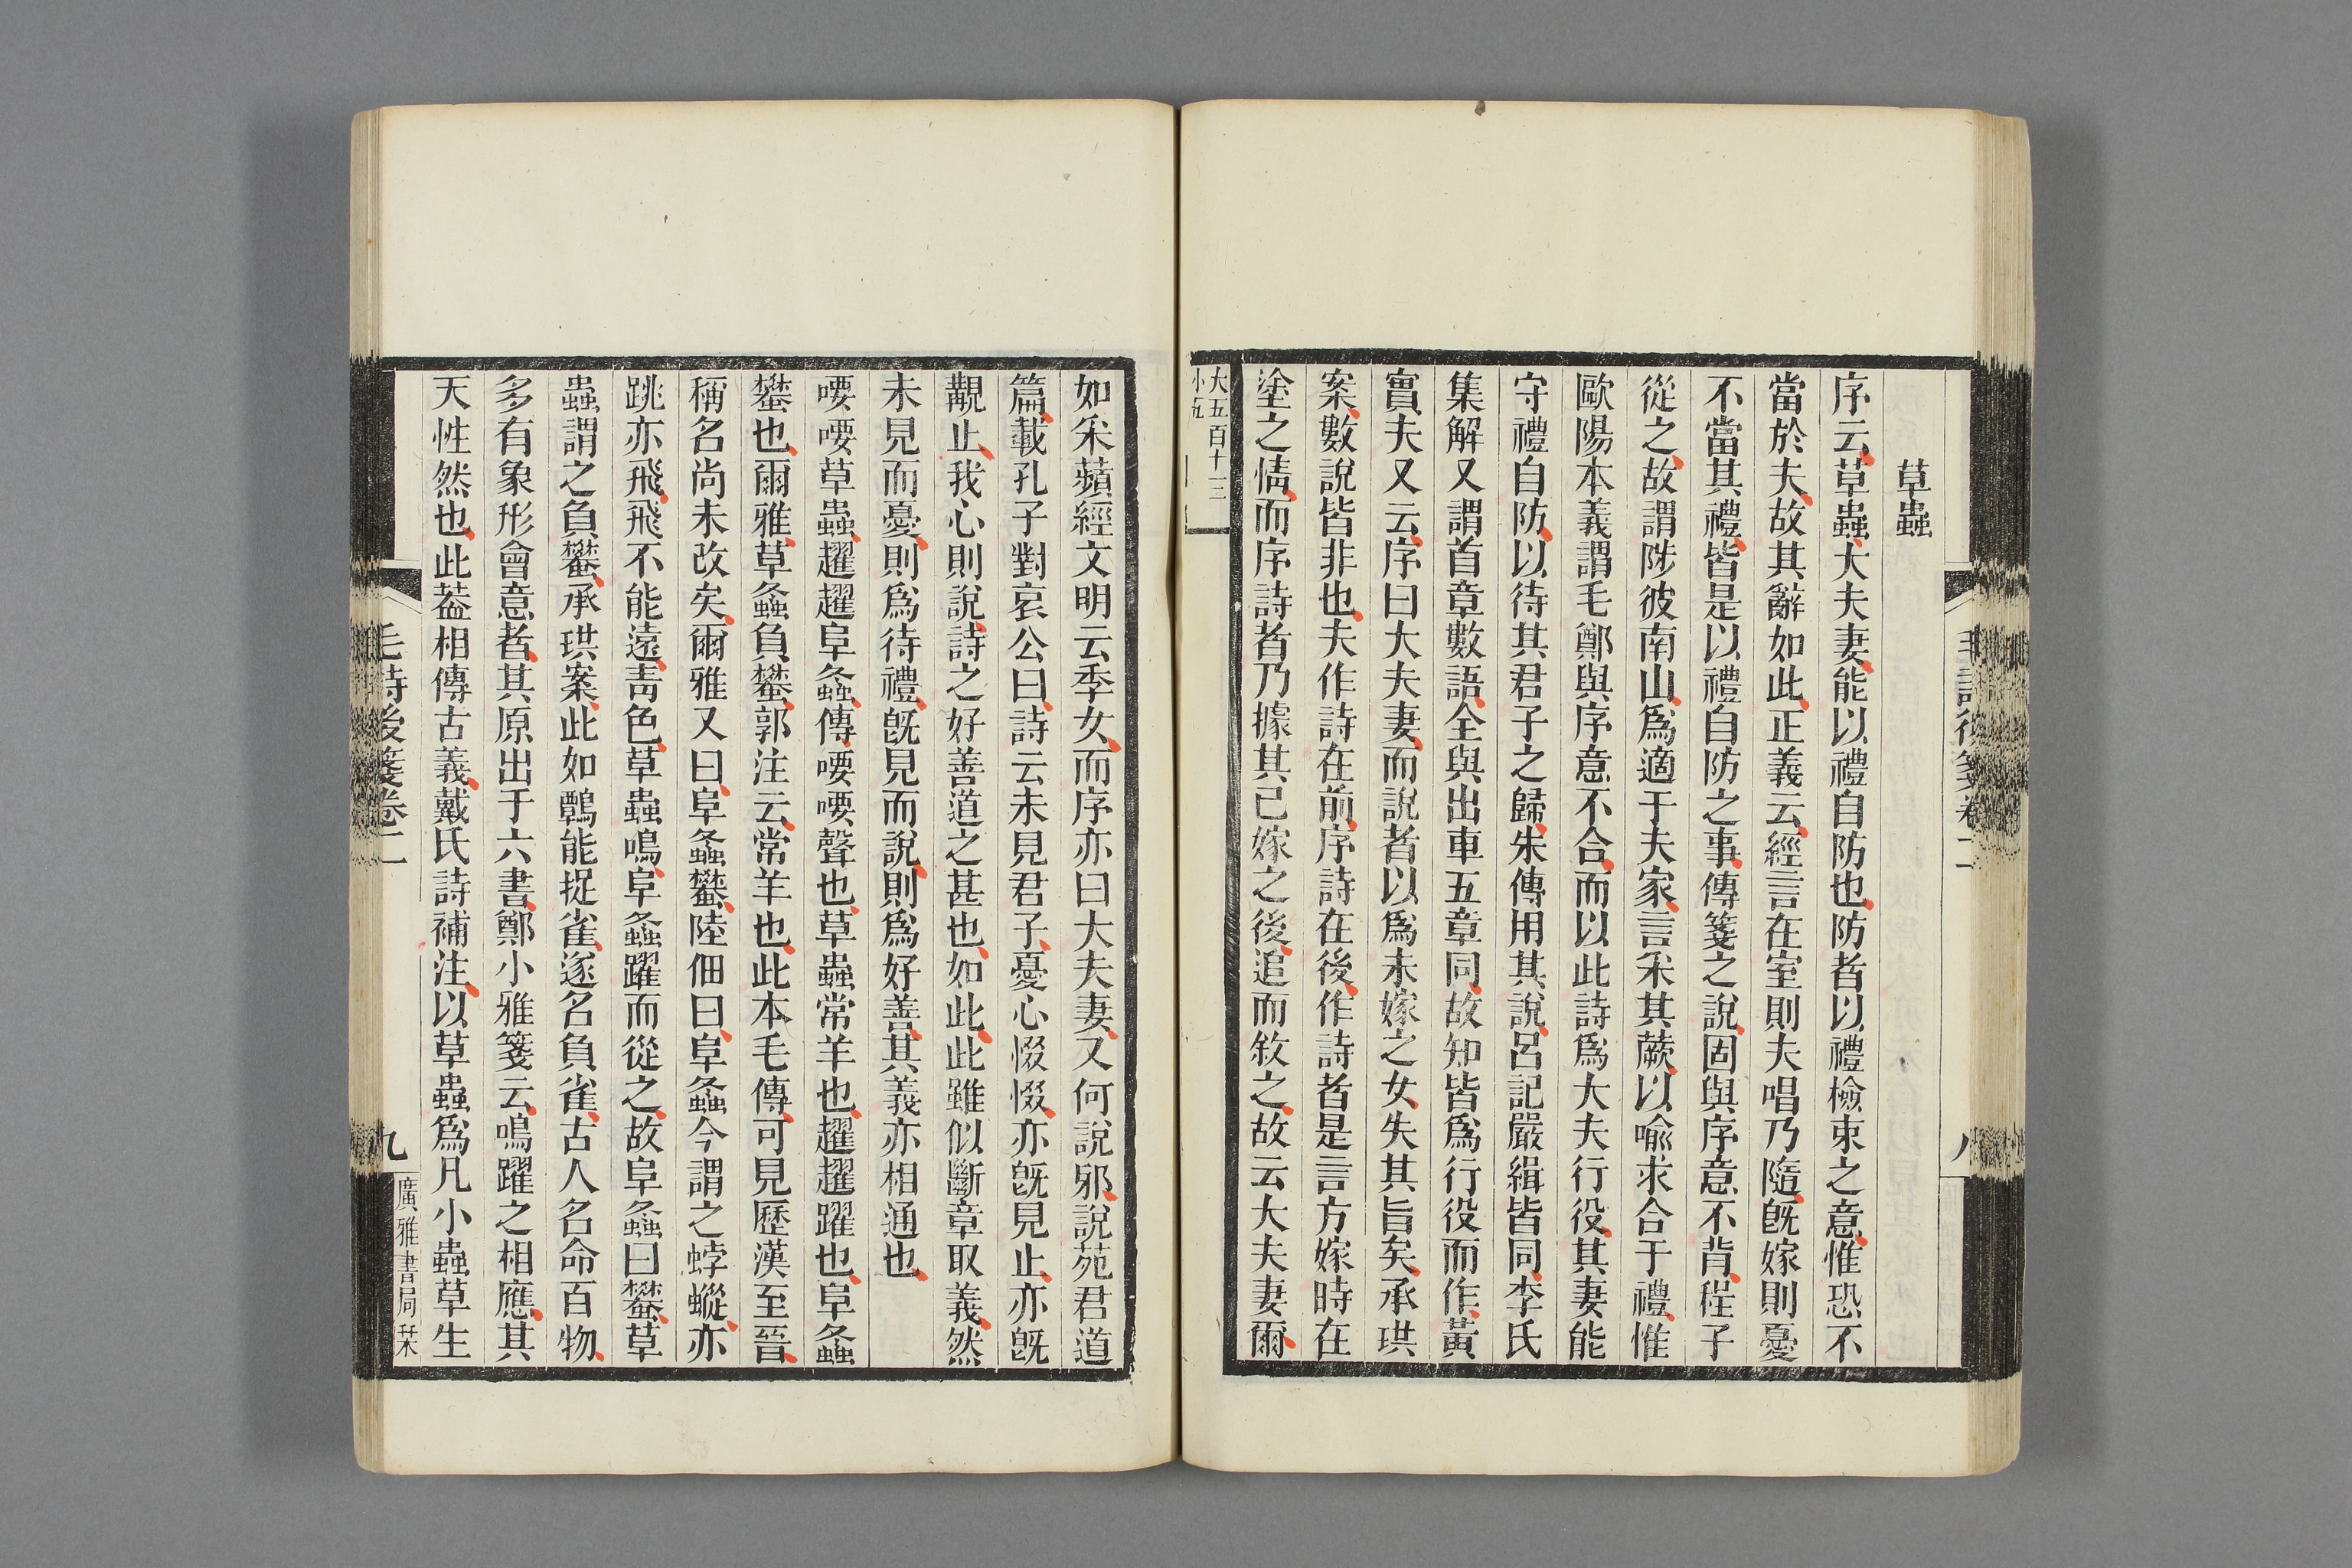 毛詩後箋卷二
八
草蟲
序云草蟲大夫妻能以禮自防也防者以禮檢束之意惟恐不
當於夫故其辭如此正義云經言在室則夫唱乃隨旣嫁則憂
不當其禮皆是以禮自防之事傳箋之說固與序意不背程子
從之故謂陟彼南山爲適于夫家言采其蕨以喻求合于禮惟
歐陽本義謂毛鄭與序意不合而以此詩爲大夫行役其妻能
守禮自防以待其君子之歸朱傳用其說呂記嚴緝皆同李氏
集解又謂首章數語全與出車五章同故知皆爲行役而作黃
實夫又云序曰大夫妻而說者以爲未嫁之女失其旨矣承珙
案數說皆非也夫作詩在前序詩在後作詩者是言方嫁時在
塗之情而序詩者乃據其已嫁之後追而敘之故云大夫妻爾
大五百十三
小五
如采蘋經文明云季女而序亦曰大夫妻又何說邪說苑君道
篇載孔子對哀公曰詩云未見君子憂心惙惙亦旣見止亦旣
覯止我心則說詩之好善道之甚也如此此雖似斷章取義然
未見而憂則爲待禮旣見而說則爲好善其義亦相通也
喓喓草蟲趯趯阜螽傳喓喓聲也草蟲常羊也趯趯躍也阜螽
蠜也爾雅草螽負蠜郭注云常羊也此本毛傳可見歷漢至晉
稱名尚未改矣爾雅又曰阜螽蠜陸佃曰阜螽今謂之蜉蝬亦
跳亦飛飛不能遠靑色草蟲鳴阜螽躍而從之故阜螽曰蠜草
蟲謂之負蠜承珙案此如鸇能捉雀遂名負雀古人名命百物
多有象形會意者其原出于六書鄭小雅箋云鳴躍之相應其
天性然也此葢相傳古義戴氏詩補注以草蟲爲凡小蟲草生
毛詩後箋卷二
九
廣雅書局栞